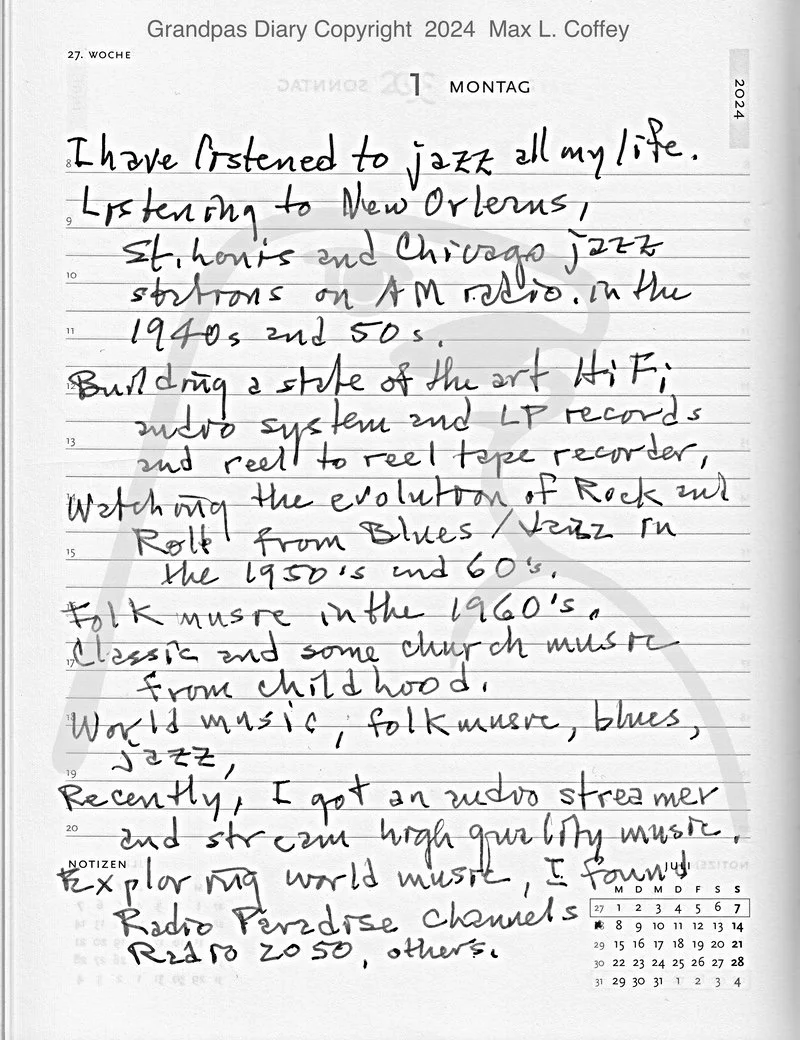 Grandpas Diary Copyright 2024 Max L. Coffey
27. WOCHE
1 MONTAG
2024
I have listened to jazz all my life.
8
Listening to New Orleans,
9
St. Louis and Chicago jazz
10
stations on AM radio. in the
11
1940s and 50s.
12
Building a state of the art HiFi
audio system and LP records
13
and reel to reel tape recorder,
14
Watching the evolution of Rock and
Roll from Blues / Jazz in
15
the 1950's and 60's.
Folk music in the 1960's.
Classic and some church music
17
from childhood.
18
World music, folk music, blues,
jazz,
19
Recently, I got an audio streamer
20
and stream high quality music.
NOTIZEN
JULI
Exploring world music, I found
Radio Paradise channels
Radio 2050, others.
M D M D F S S
27 1 2 3 4 5 6 7
8 9 10 11 12 13 14
29 15 16 17 18 19 20 21
30 22 23 24 25 26 27 28
31 29 30 31 1 2 3 4